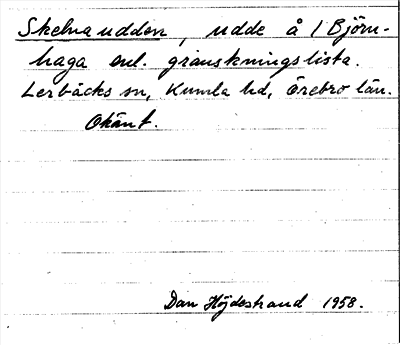 Skelnaudden, udde å 1 Björn-
haga enl. granskningslista.
Lerbäcks sn, Kumla hd, Örebro län.
Okänt.
Dan Höjdestrand 1958.